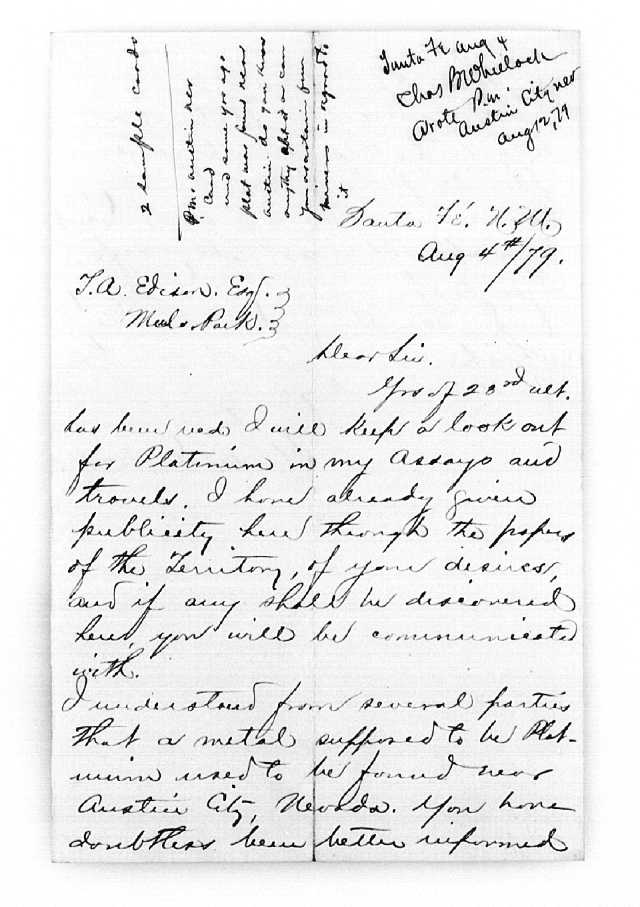 Santa Fe Aug 4
Chas B Wheelock
Wrote P.m.
Austin City Nev
Aug 12, 79
2 sample cards
P.m. austin nev
Card
and some yrs ago
plat was found near
austin do you know
anything abt it or can
you ascertain from
miners in regard to
it
Santa Fé. N.M.
Aug 4th/79.
T.A. Edison. Esq.
Menlo Park.
Dear Sir.
Yrs of 23rd ult.
has been recd I will keep a look out
for Platinium in my Assays and
travels. I have already given
publicity here through the papers
of the Territory, of your desires,
and if any shall be discovered
here, you will be communicated
with.
I understand from several parties
that a metal supposed to be Plat-
inium used to be found near
Austin City, Nevada. You have
doubtless been better informed